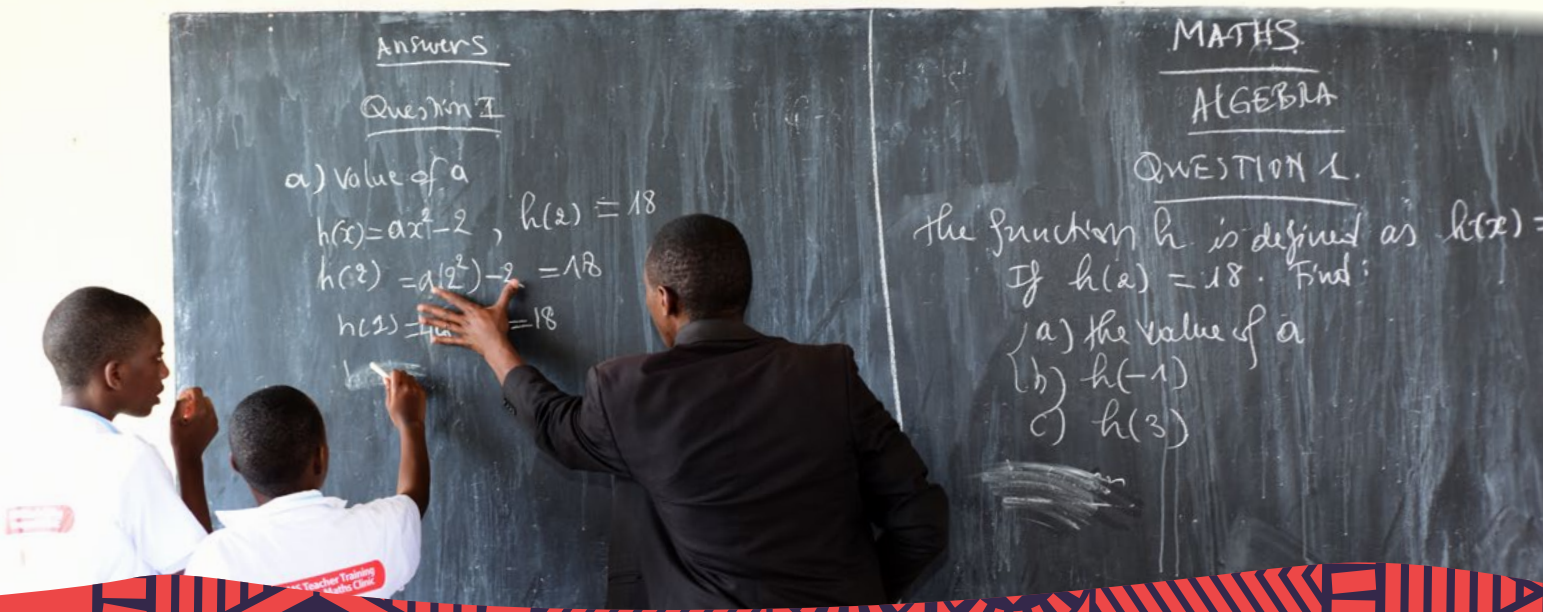 Answers
Question 1
a) value of a
h(x)=ax²-2 , h(2) = 18
h(2) =a(2²)-2 =18
h(2)= =18
MATHS
ALGEBRA
QUESTION 1.
the function h is defined as h(x) =
If h(2) = 18. Find:
(a) the value of a
(b) h(-1)
c) h(3)
Teacher Training
Maths Clinic